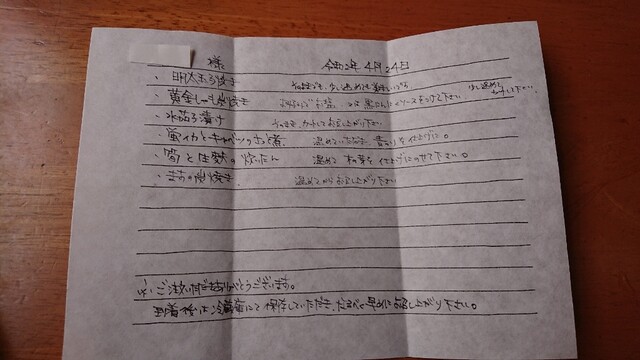 様 令和2年 4月24日
・明太玉子焼き そのままでも、少し温めても美味しい
・黄金しゅうまい 又は 黒い ソースをつけて下さい 少し温めて カットして下さい。
・水茄子漬け そのまま、カットしてお召し上がり下さい
・蛍イカとキャベツの 煮 温めていただき、青のりを仕上げに。
・筍と生麩の炊いたん 温めて 木の芽を仕上げにのせて下さい。
・ 焼き 温めてからお召し上がり下さい
ご注文いただきありがとうございます。
到着後は冷蔵庫にて保存していただき、なるべく早めにお召し上がり下さい。